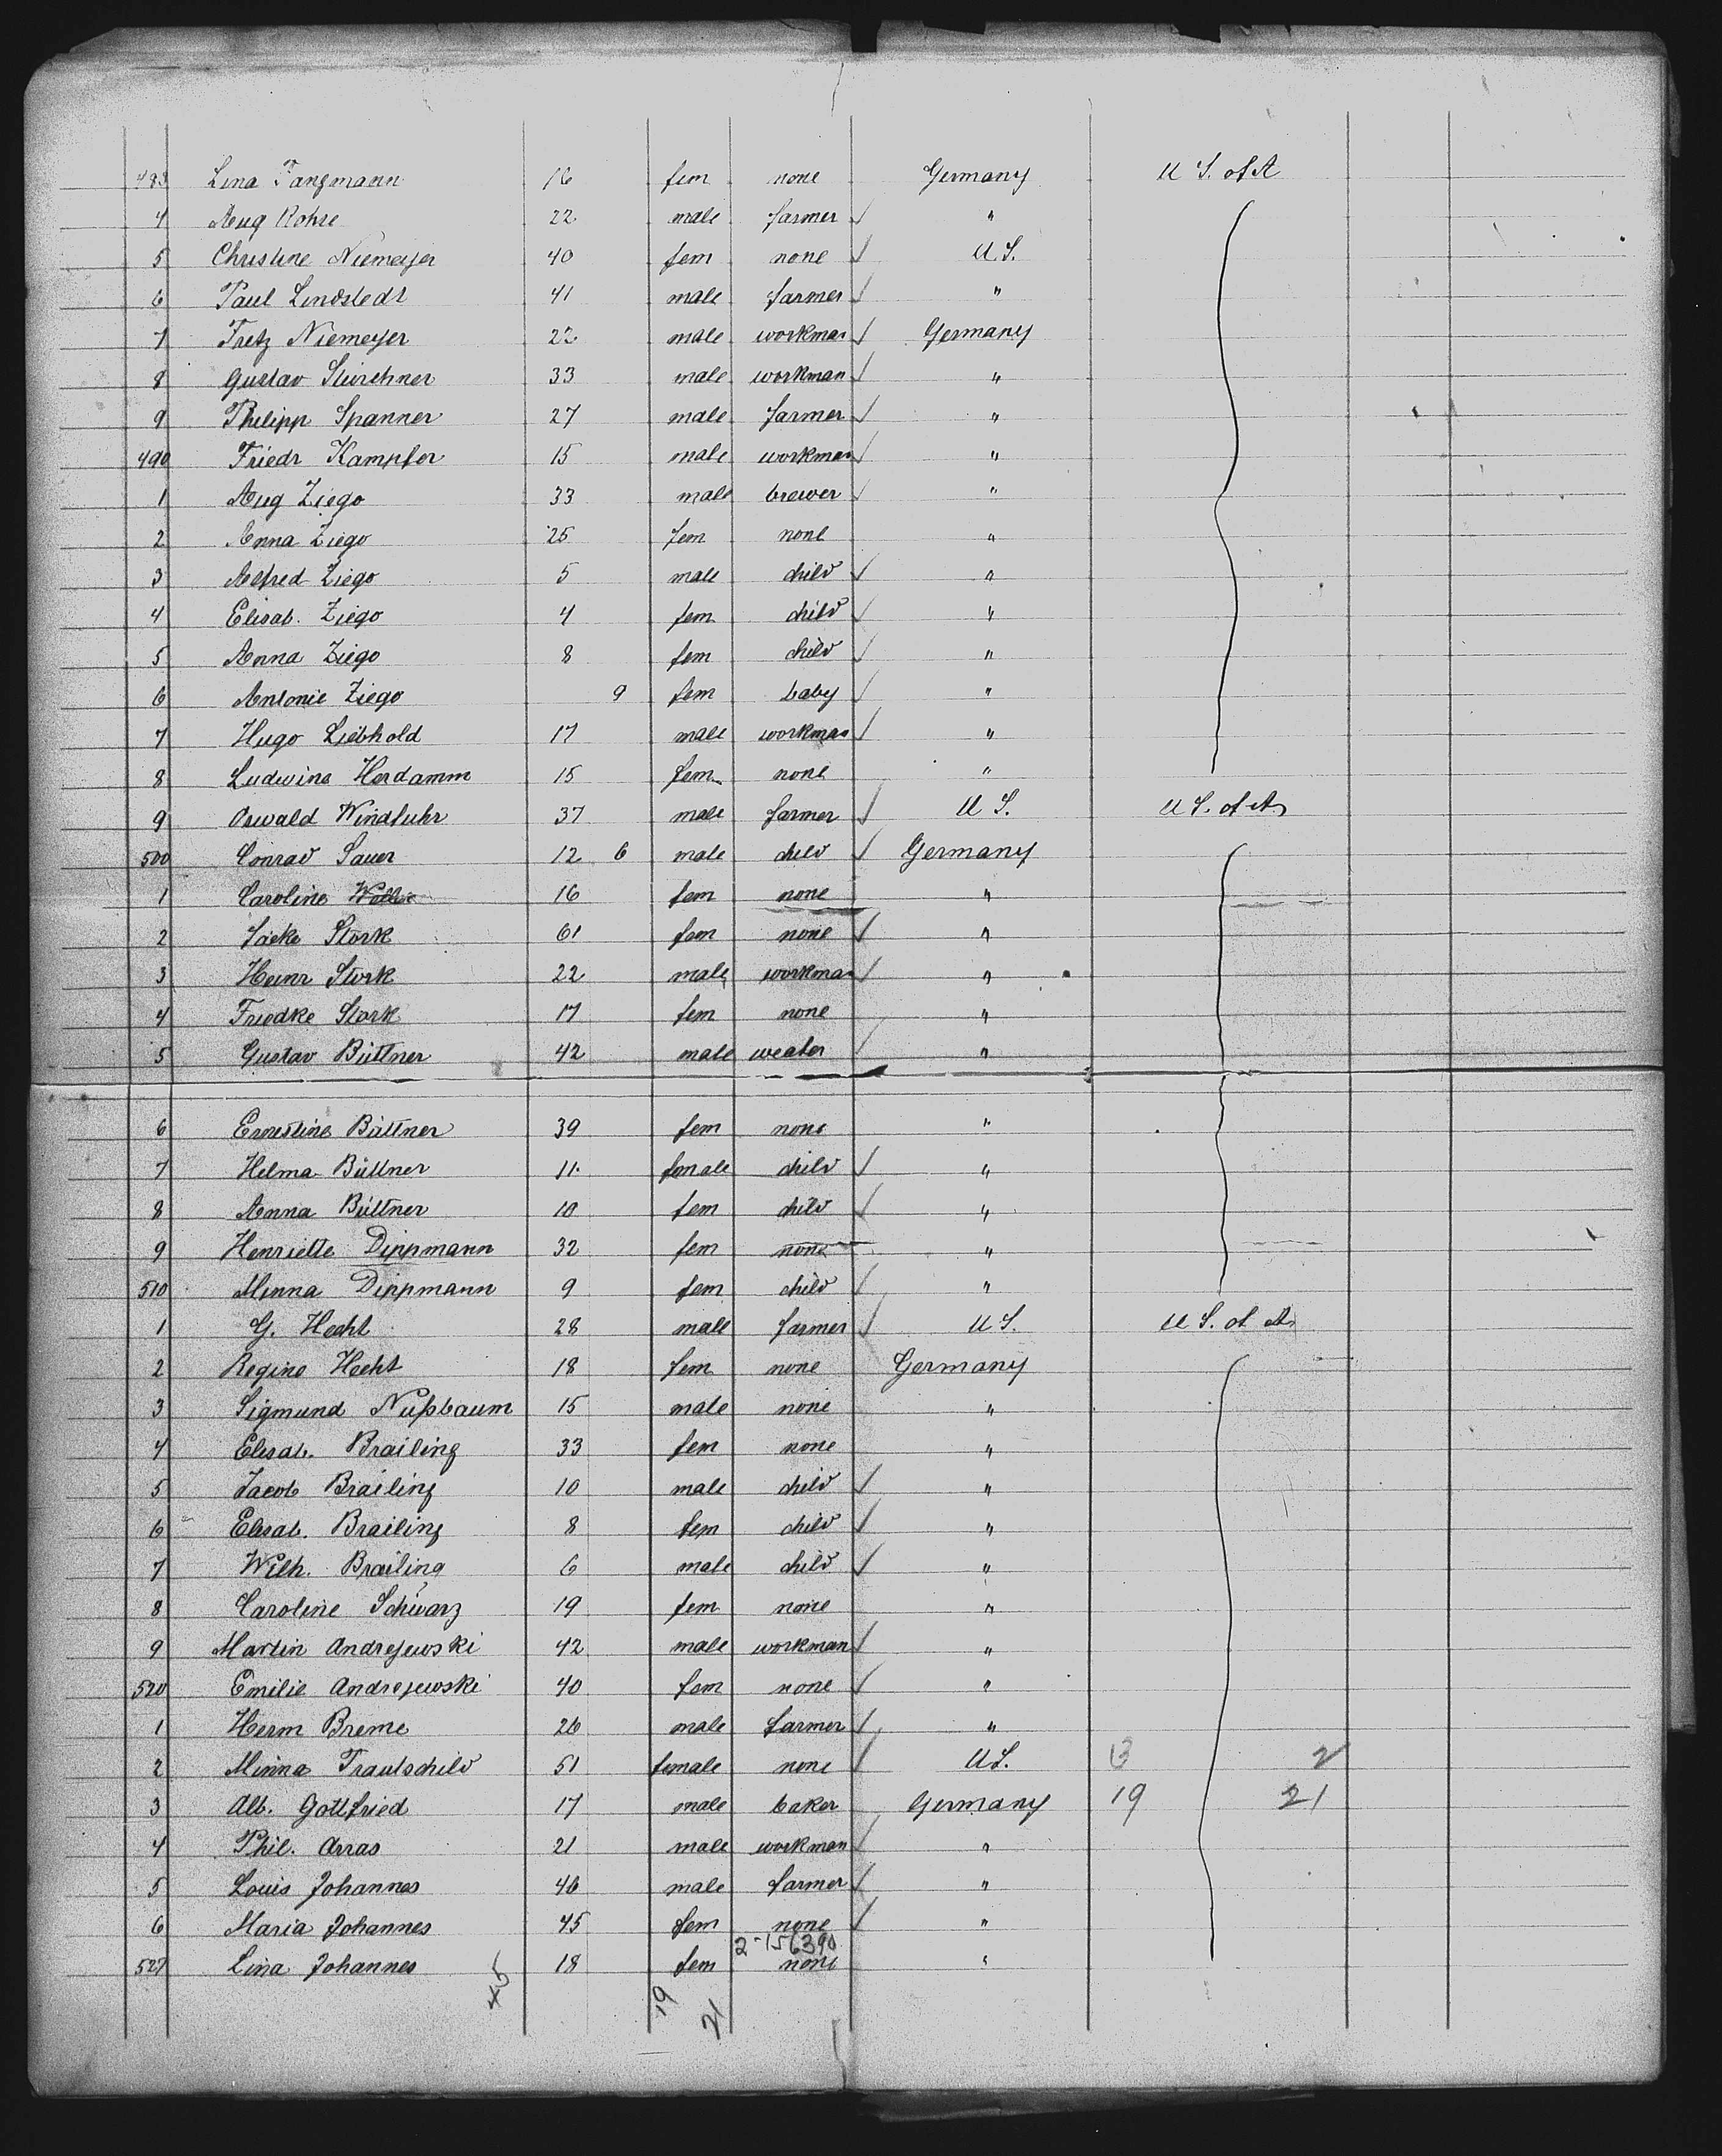 483 Lina Fangmann 16 fem none Germany U S. of A
4 Aug Rohre 22 male farmer "
5 Christine Niemeyer 40 fem none U.S.
6 Paul Lindstedt 41 male farmer "
7 Fretz Niemeyer 22 male workman Germany
8 Gustav 33 male workman "
9 Philipp Spanner 27 male farmer "
490 Friedr Kampfer 15 male workman "
1 Aug Ziego 33 male brewer "
2 Anna Ziego 25 fem none "
3 Alfred Ziego 5 male child "
4 Elisab. Ziego 4 fem child "
5 Anna Ziego 8 fem child "
6 Antonie Ziego 9 fem baby "
7 Hugo Liebhold 17 male workman "
8 Ludwina Herdamm 15 fem none "
9 Oswald Windfuhr 37 male farmer U S. U S. of A
500 Conrad Sauer 12 6 male child Germany
1 Caroline 16 fem none "
2 Stork 61 fem none "
3 Heinr Stork 22 male workman "
4 Friedke Stork 17 fem none "
5 Gustav Büttner 42 male weaber "
6 Ernestine Büttner 39 fem none "
7 Helma Büttner 11 female child "
8 Anna Büttner 10 fem child "
9 Henriette Dippmann 32 fem none "
510 Minna Dippmann 9 fem child "
1 G. Hecht 28 male farmer U S. U S. of A
2 Regine Hecht 18 fem none Germany
3 Sigmund Nußbaum 15 male none "
4 Elisab. Brailing 33 fem none "
5 Jacob Brailing 10 male child "
6 Elisab. Brailing 8 fem child "
7 Wilh. Brailing 6 male child "
8 Caroline Schwarz 19 fem none "
9 Martin Andrejewski 42 male workman "
520 Emilie Andrejewski 40 fem none "
1 Herm Breme 26 male farmer "
2 Minna Trautschild 51 female none U S. 13 2
3 Alb. Gottfried 17 male baker Germany 19 21
4 Phil. Arras 21 male workman "
5 Louis Johannes 46 male farmer "
6 Maria Johannes 45 fem none "
2-156390
527 Lina Johannes 18 fem none "
45 19 21